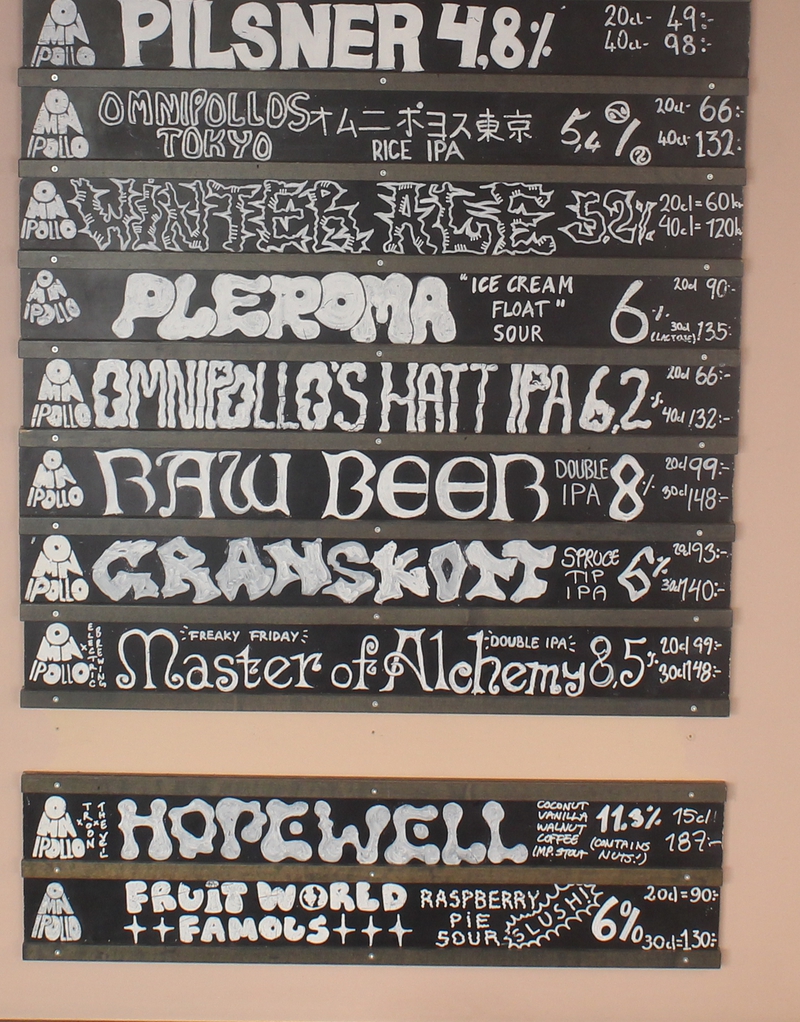 OMNIPOLLO
PILSNER 4,8% 20cl- 49:-
40cl- 98:-
OMNIPOLLO
OMNIPOLLOS オムニポヨス東京 5,4% 20cl- 66:-
TOKYO RICE IPA 40cl- 132:-
OMNIPOLLO
WINTER ALE 5,2% 20cl=60kr
40cl=120k
OMNIPOLLO
PLEROMA "ICE CREAM FLOAT" SOUR 6% (LACTOSE!) 20cl 90:-
30cl 135:-
OMNIPOLLO
OMNIPOLLO'S HATT IPA 6,2% 20cl 66:-
40cl 132:-
OMNIPOLLO
RAW BEER DOUBLE IPA 8% 20cl 99:-
30cl 148:-
OMNIPOLLO
GRANSKOTT SPRUCE TIP IPA 6% 20cl 93:-
30cl 140:-
OMNIPOLLO x ELECTRIC BREWING
"FREAKY FRIDAY" DOUBLE IPA
Master of Alchemy 8,5% 20cl 99:-
30cl 148:-
OMNIPOLLO x TROON x THE VEIL
HOPEWELL COCONUT VANILLA WALNUT COFFEE IMP. STOUT 11.3% (CONTAINS NUTS!) 15cl!
187:-
OMNIPOLLO
FRUIT WORLD FAMOUS RASPBERRY PIE SOUR SLUSH! 6% 20cl=90:-
30cl=130:-